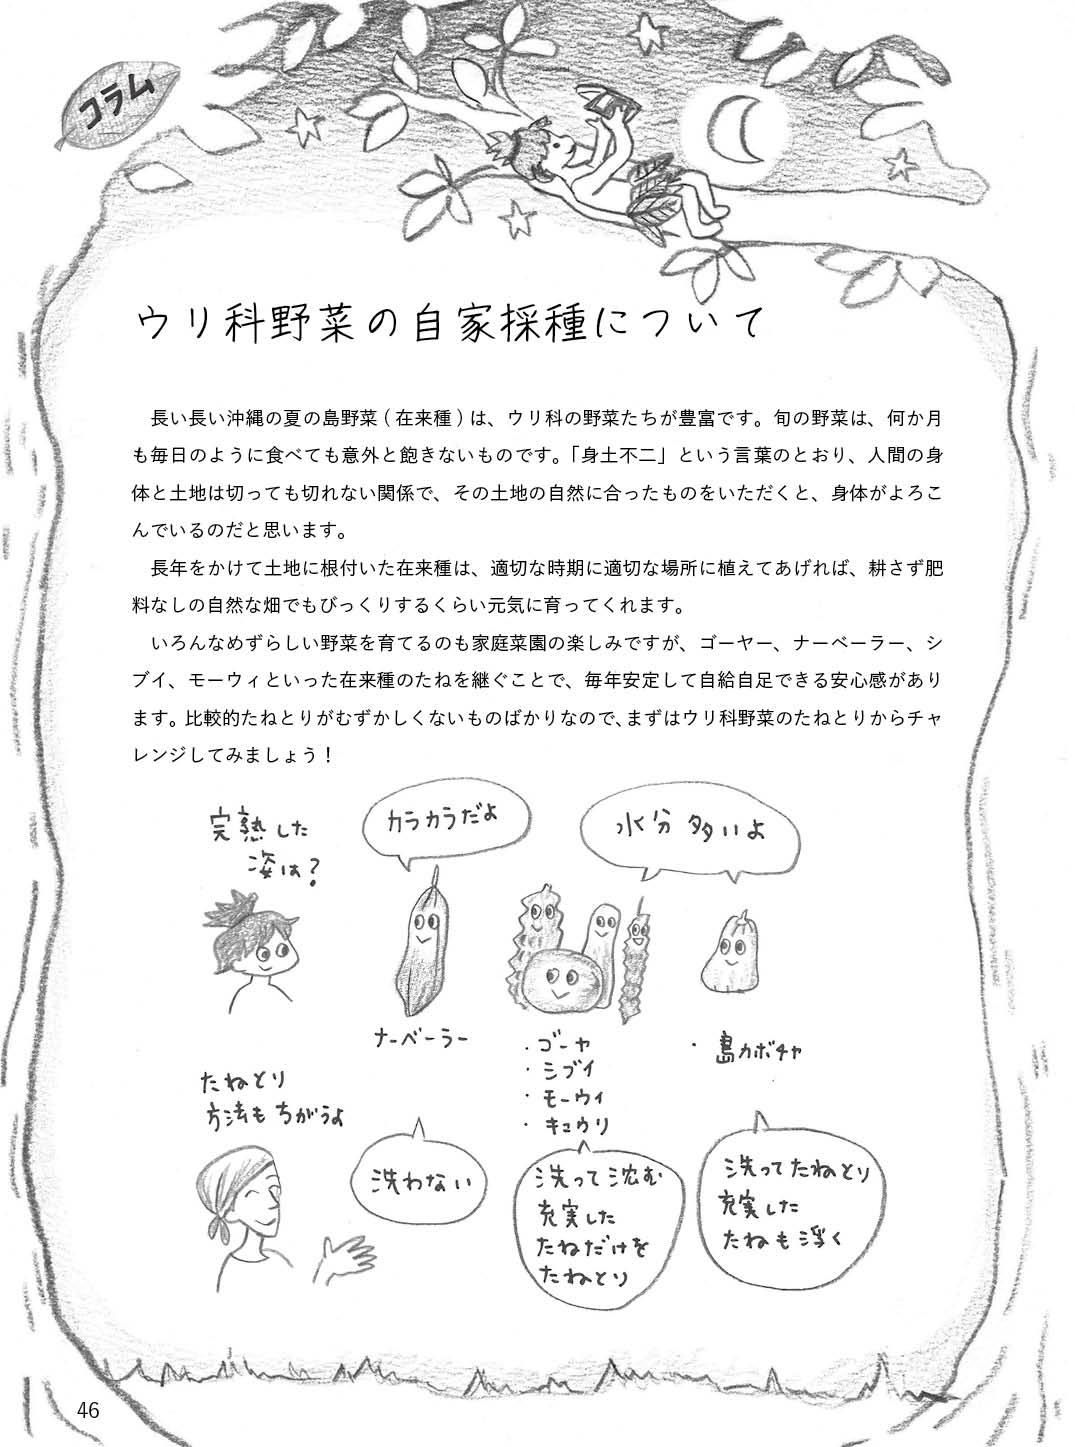 コラム
ウリ科野菜の自家採種について
長い長い沖縄の夏の島野菜(在来種)は、ウリ科の野菜たちが豊富です。旬の野菜は、何か月
も毎日のように食べても意外と飽きないものです。「身土不二」という言葉のとおり、人間の身
体と土地は切っても切れない関係で、その土地の自然に合ったものをいただくと、身体がよろこ
んでいるのだと思います。
長年をかけて土地に根付いた在来種は、適切な時期に適切な場所に植えてあげれば、耕さず肥
料なしの自然な畑でもびっくりするくらい元気に育ってくれます。
いろんなめずらしい野菜を育てるのも家庭菜園の楽しみですが、ゴーヤー、ナーベーラー、シ
ブイ、モーウィといった在来種のたねを継ぐことで、毎年安定して自給自足できる安心感があり
ます。比較的たねとりがむずかしくないものばかりなので、まずはウリ科野菜のたねとりからチャ
レンジしてみましょう！
完熟した
姿は？
カラカラだよ
水分多いよ
ナーベーラー
・ゴーヤ
・シブイ
・モーウィ
・キュウリ
・島カボチャ
たねとり
方法もちがうよ
洗わない
洗って沈む
充実した
たねだけを
たねとり
洗ってたねとり
充実した
たねも浮く
46